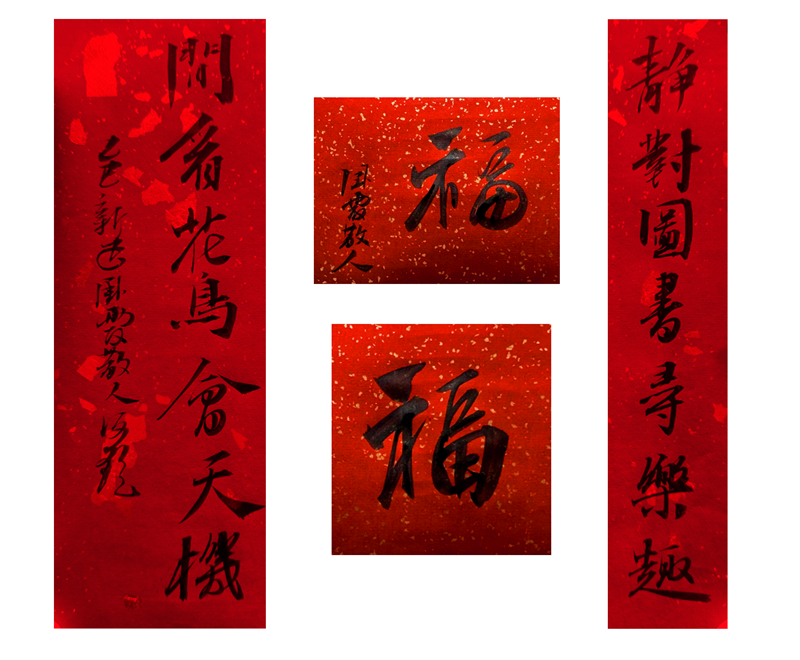 靜對圖書尋樂趣
福
散人
福
間看花鳥會天機
散人